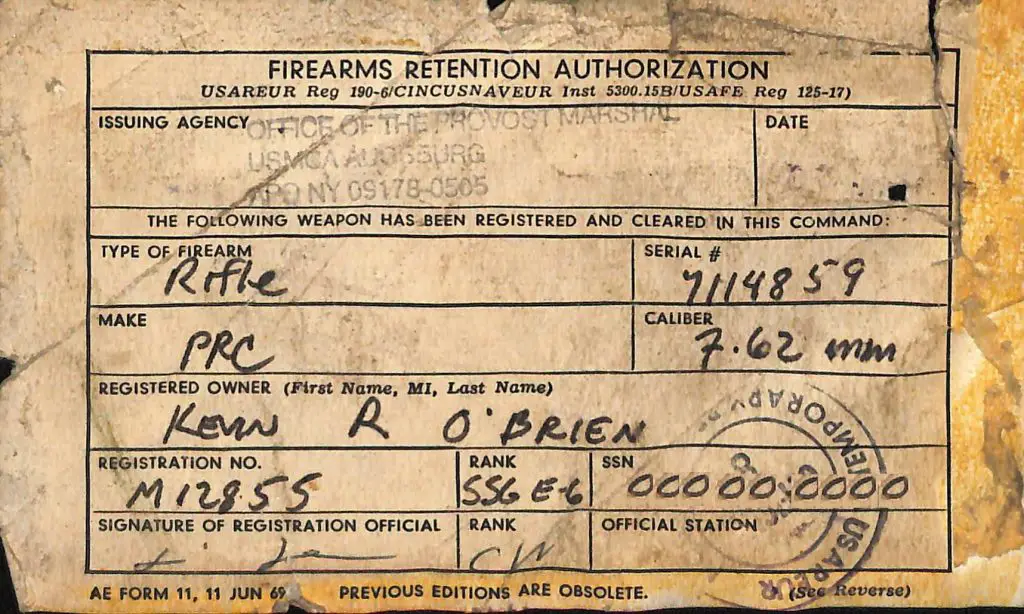 FIREARMS RETENTION AUTHORIZATION
USAREUR Reg 190-6/CINCUSNAVEUR Inst 5300.15B/USAFE Reg 125-17)
ISSUING AGENCY
OFFICE OF THE PROVOST MARSHAL
USMCA AUGSBURG
APO NY 09178-0505
DATE
THE FOLLOWING WEAPON HAS BEEN REGISTERED AND CLEARED IN THIS COMMAND:
TYPE OF FIREARM
Rifle
SERIAL #
7114859
MAKE
PRC
CALIBER
7.62 mm
REGISTERED OWNER (First Name, MI, Last Name)
KEVIN R O'BRIEN
REGISTRATION NO.
M12855
RANK
SSG E-6
SSN
000 00 0000
SIGNATURE OF REGISTRATION OFFICIAL
RANK
CW
OFFICIAL STATION
TEMPORARY
USAREUR
AE FORM 11, 11 JUN 69
PREVIOUS EDITIONS ARE OBSOLETE.
(See Reverse)